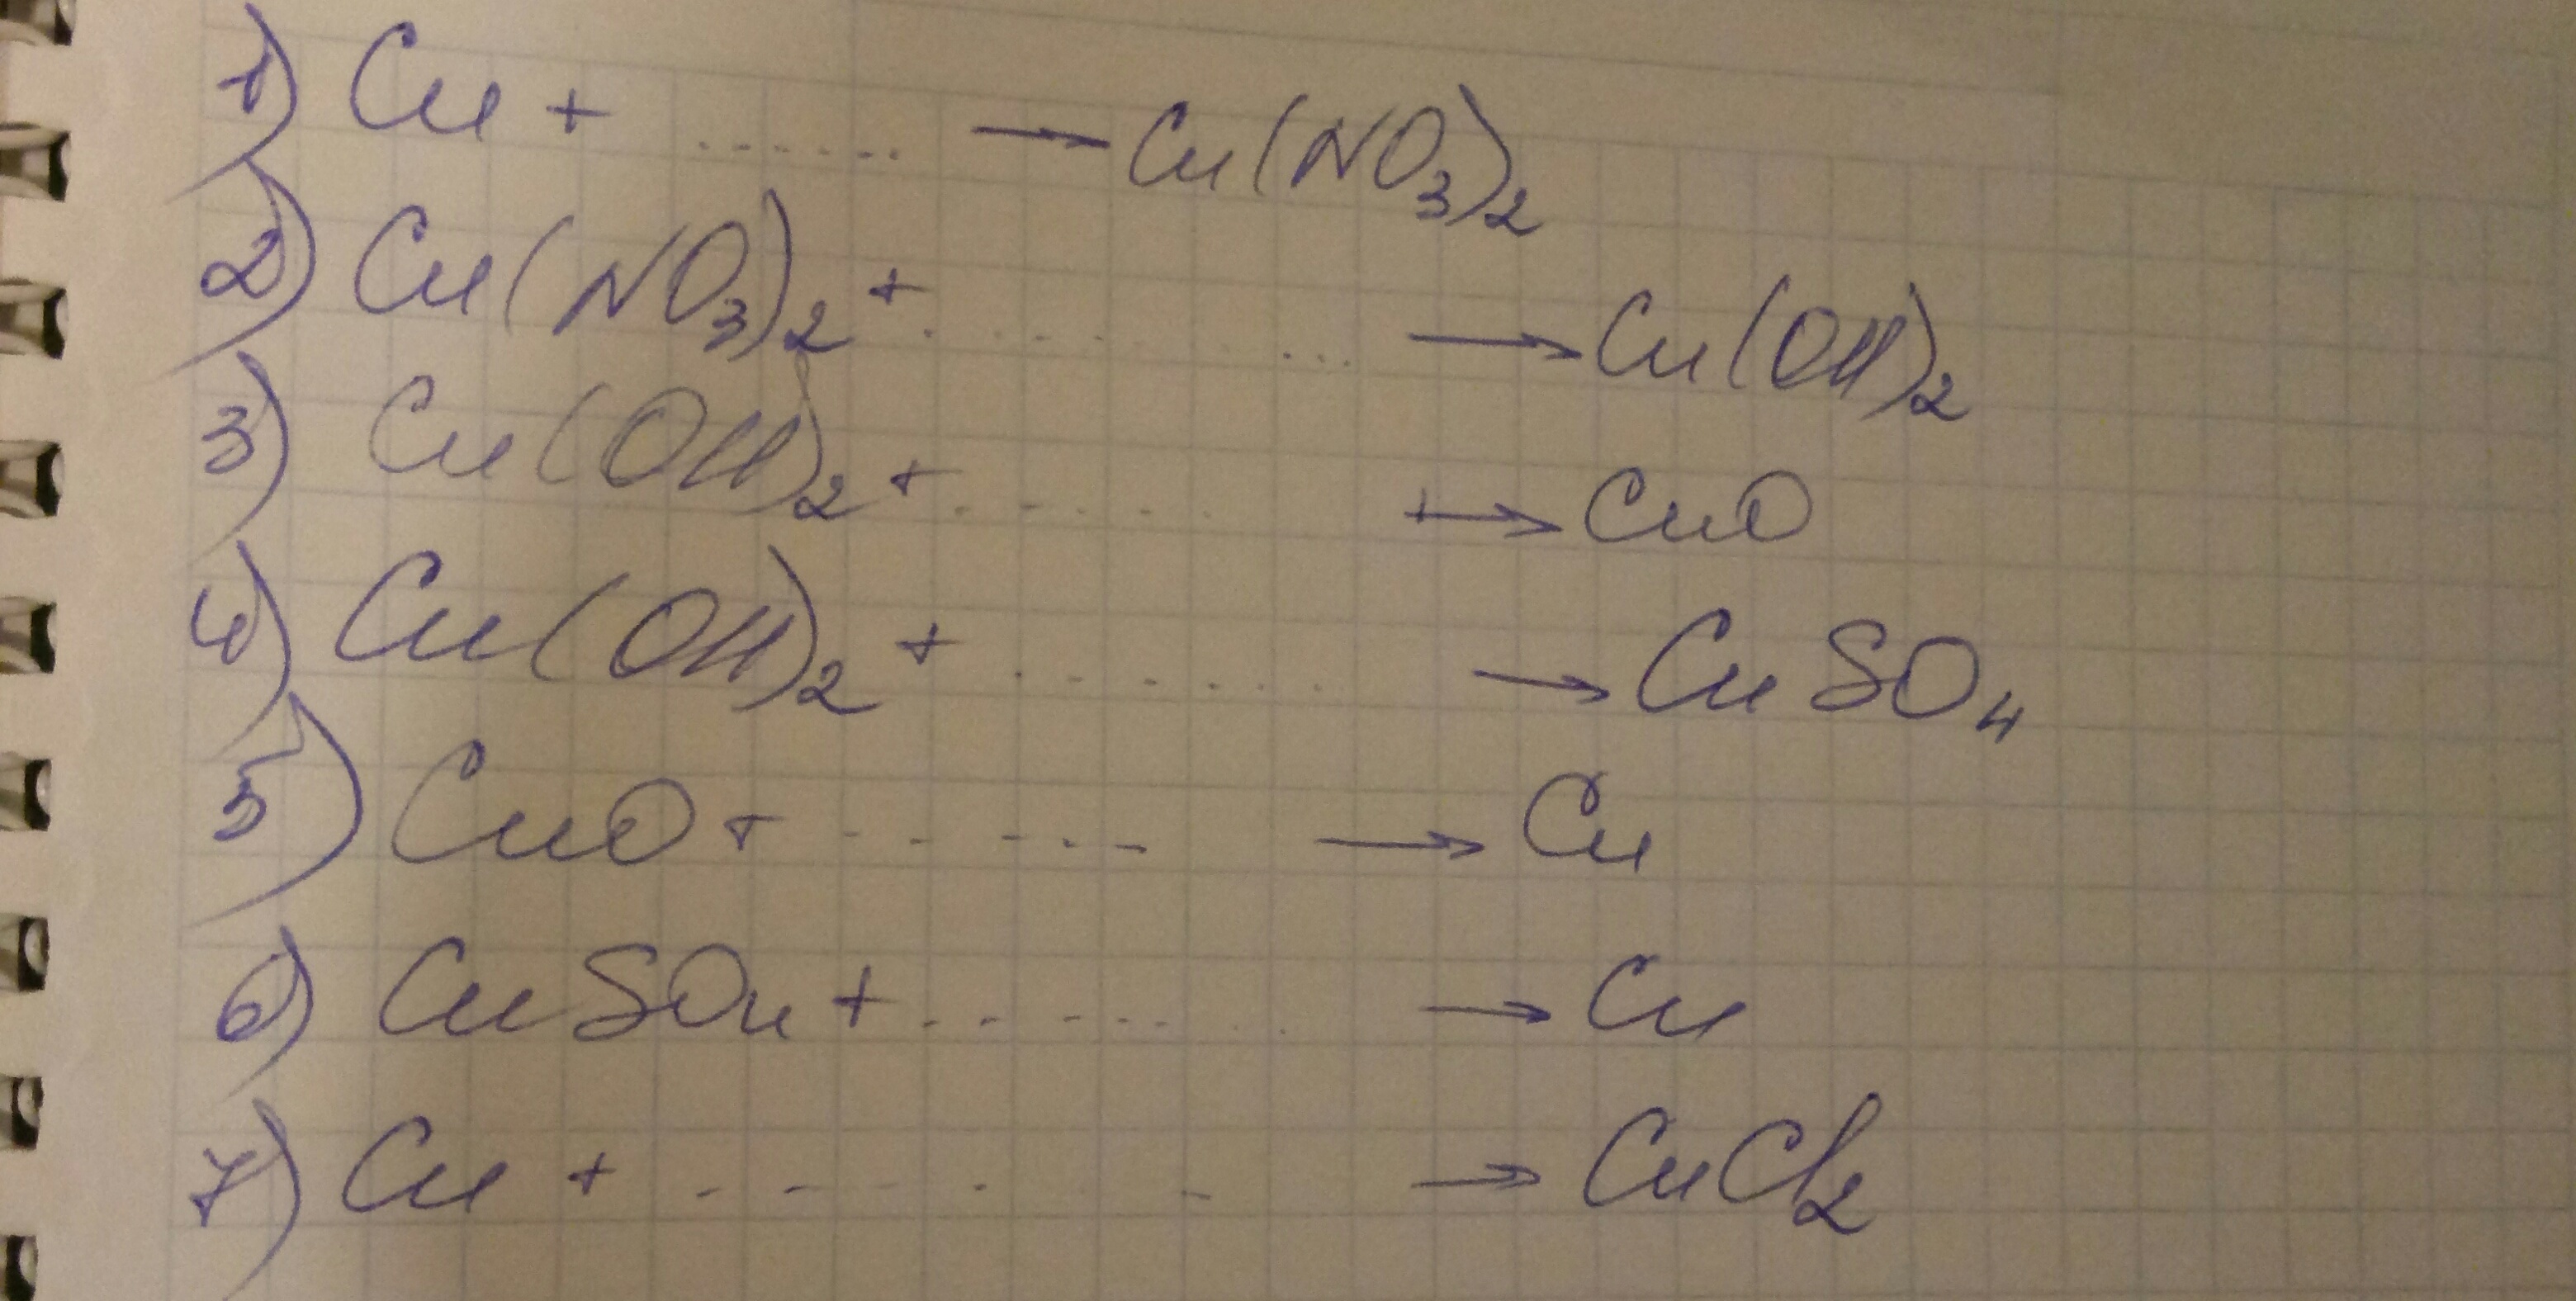 1) Cu + ...... → Cu(NO₃)₂
2) Cu(NO₃)₂ + .......... → Cu(OH)₂
3) Cu(OH)₂ + ....... → CuO
4) Cu(OH)₂ + ....... → CuSO₄
5) CuO + ------ → Cu
6) CuSO₄ + ........ → Cu
7) Cu + - - - - → CuCl₂